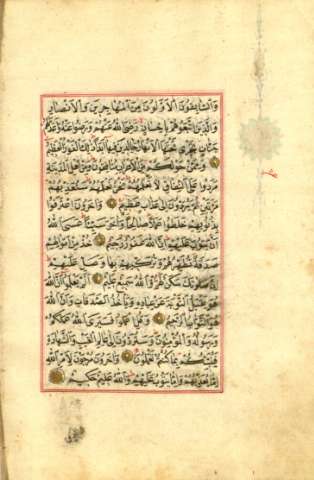 وَالسَّابِقُونَ الْاَوَّلُونَ مِنَ الْمُهَاجِرِينَ وَالْاَنْصَارِ
وَالَّذِينَ اتَّبَعُوهُمْ بِاِحْسَانٍ رَضِيَ اللهُ عَنْهُمْ وَرَضُوا عَنْهُ وَاَعَدَّ لَهُمْ
جَنَّاتٍ تَجْرِي تَحْتَهَا الْاَنْهَارُ خَالِدِينَ فِيهَا اَبَدًا ذٰلِكَ الْفَوْزُ الْعَظِيمُ
وَمِمَّنْ حَوْلَكُمْ مِنَ الْاَعْرَابِ مُنَافِقُونَ وَمِنْ اَهْلِ الْمَدِينَةِ
مَرَدُوا عَلَى النِّفَاقِ لَا تَعْلَمُهُمْ نَحْنُ نَعْلَمُهُمْ سَنُعَذِّبُهُمْ
مَرَّتَيْنِ ثُمَّ يُرَدُّونَ اِلٰى عَذَابٍ عَظِيمٍ وَاٰخَرُونَ اعْتَرَفُوا
بِذُنُوبِهِمْ خَلَطُوا عَمَلًا صَالِحًا وَاٰخَرَ سَيِّئًا عَسَى اللهُ
اَنْ يَتُوبَ عَلَيْهِمْ اِنَّ اللهَ غَفُورٌ رَحِيمٌ خُذْ مِنْ اَمْوَالِهِمْ
صَدَقَةً تُطَهِّرُهُمْ وَتُزَكِّيهِمْ بِهَا وَصَلِّ عَلَيْهِمْ
اِنَّ صَلٰوتَكَ سَكَنٌ لَهُمْ وَاللهُ سَمِيعٌ عَلِيمٌ اَلَمْ يَعْلَمُوا اَنَّ اللهَ
هُوَ يَقْبَلُ التَّوْبَةَ عَنْ عِبَادِهِ وَيَاْخُذُ الصَّدَقَاتِ وَاَنَّ اللهَ
هُوَ التَّوَّابُ الرَّحِيمُ وَقُلِ اعْمَلُوا فَسَيَرَى اللهُ عَمَلَكُمْ
وَرَسُولُهُ وَالْمُؤْمِنُونَ وَسَتُرَدُّونَ اِلٰى عَالِمِ الْغَيْبِ وَالشَّهَادَةِ
فَيُنَبِّئُكُمْ بِمَا كُنْتُمْ تَعْمَلُونَ وَاٰخَرُونَ مُرْجَوْنَ لِاَمْرِ اللهِ
اِمَّا يُعَذِّبُهُمْ وَاِمَّا يَتُوبُ عَلَيْهِمْ وَاللهُ عَلِيمٌ حَكِيمٌ